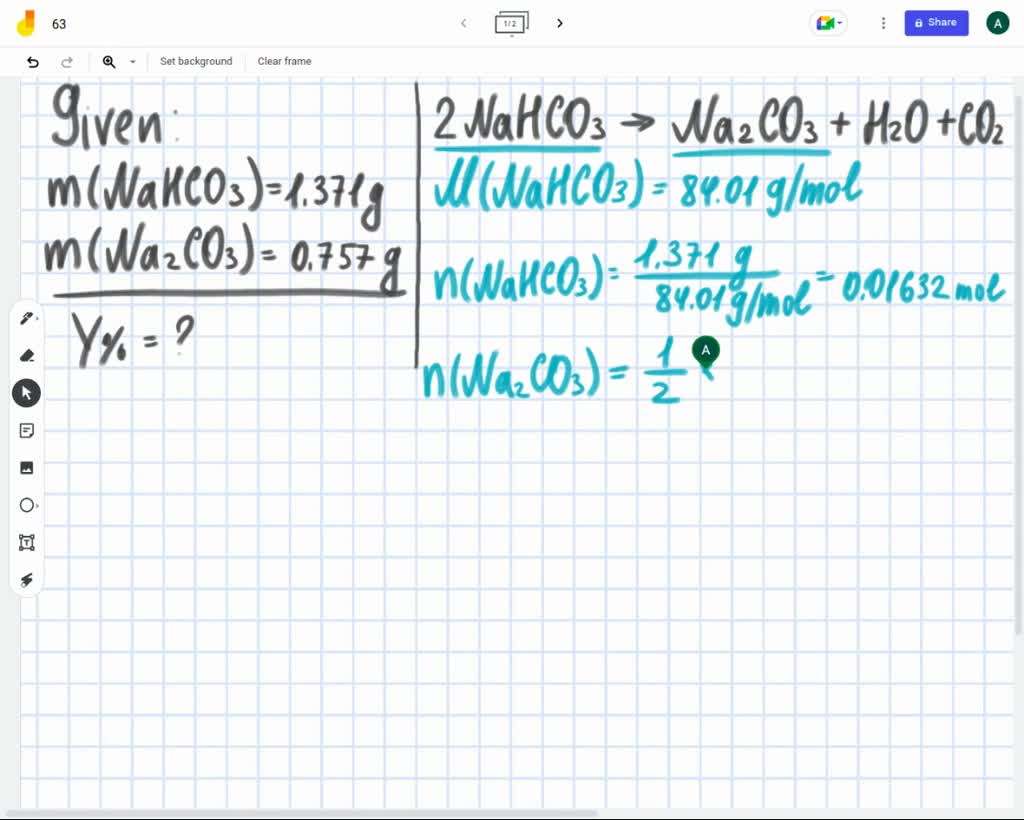 63
1/2
Share
A
Set background
Clear frame
Given:
m(NaHCO₃)=1.371g
m(Na₂CO₃)= 0.757 g
Y% = ?
2 NaHCO₃ → Na₂CO₃ + H₂O +CO₂
M(NaHCO₃) = 84.01 g/mol
n(NaHCO₃) = 1.371 g / 84.01 g/mol = 0.01632 mol
n(Na₂CO₃) = 1/2
A